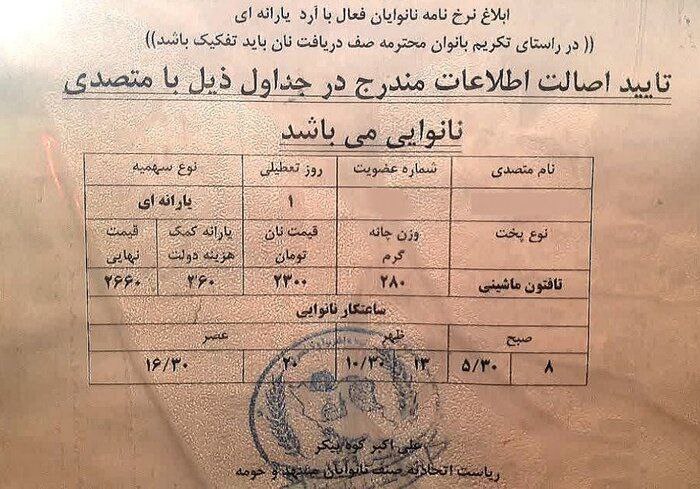 ابلاغ نرخ نامه نانوایان فعال با آرد یارانه ای
(( در راستای تکریم بانوان محترمه صف دریافت نان باید تفکیک باشد))
تایید اصالت اطلاعات مندرج در جداول ذیل با متصدی
نانوایی می باشد
نام متصدی شماره عضویت روز تعطیلی نوع سهمیه
۱ یارانه ای
نوع پخت وزن چانه گرم قیمت نان تومان یارانه کمک هزینه دولت قیمت نهایی
تافتون ماشینی ۲۸۰ ۲۳۰۰ ۳۶۰ ۲۶۶۰
ساعتکار نانوایی
صبح ظهر عصر
۸ ۵/۳۰ ۱۳ ۱۰/۳۰ ۲۰ ۱۶/۳۰
علی اکبر کوه پیکر
ریاست اتحادیه صنف نانوایان و حومه